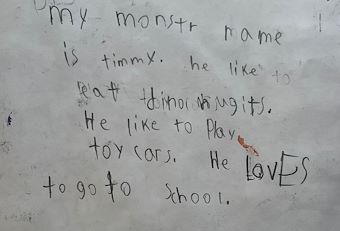 my monstr name
is timmy. he like to
eat dinor nugits.
He like to Play
toy cars. He LOVES
to go to School.